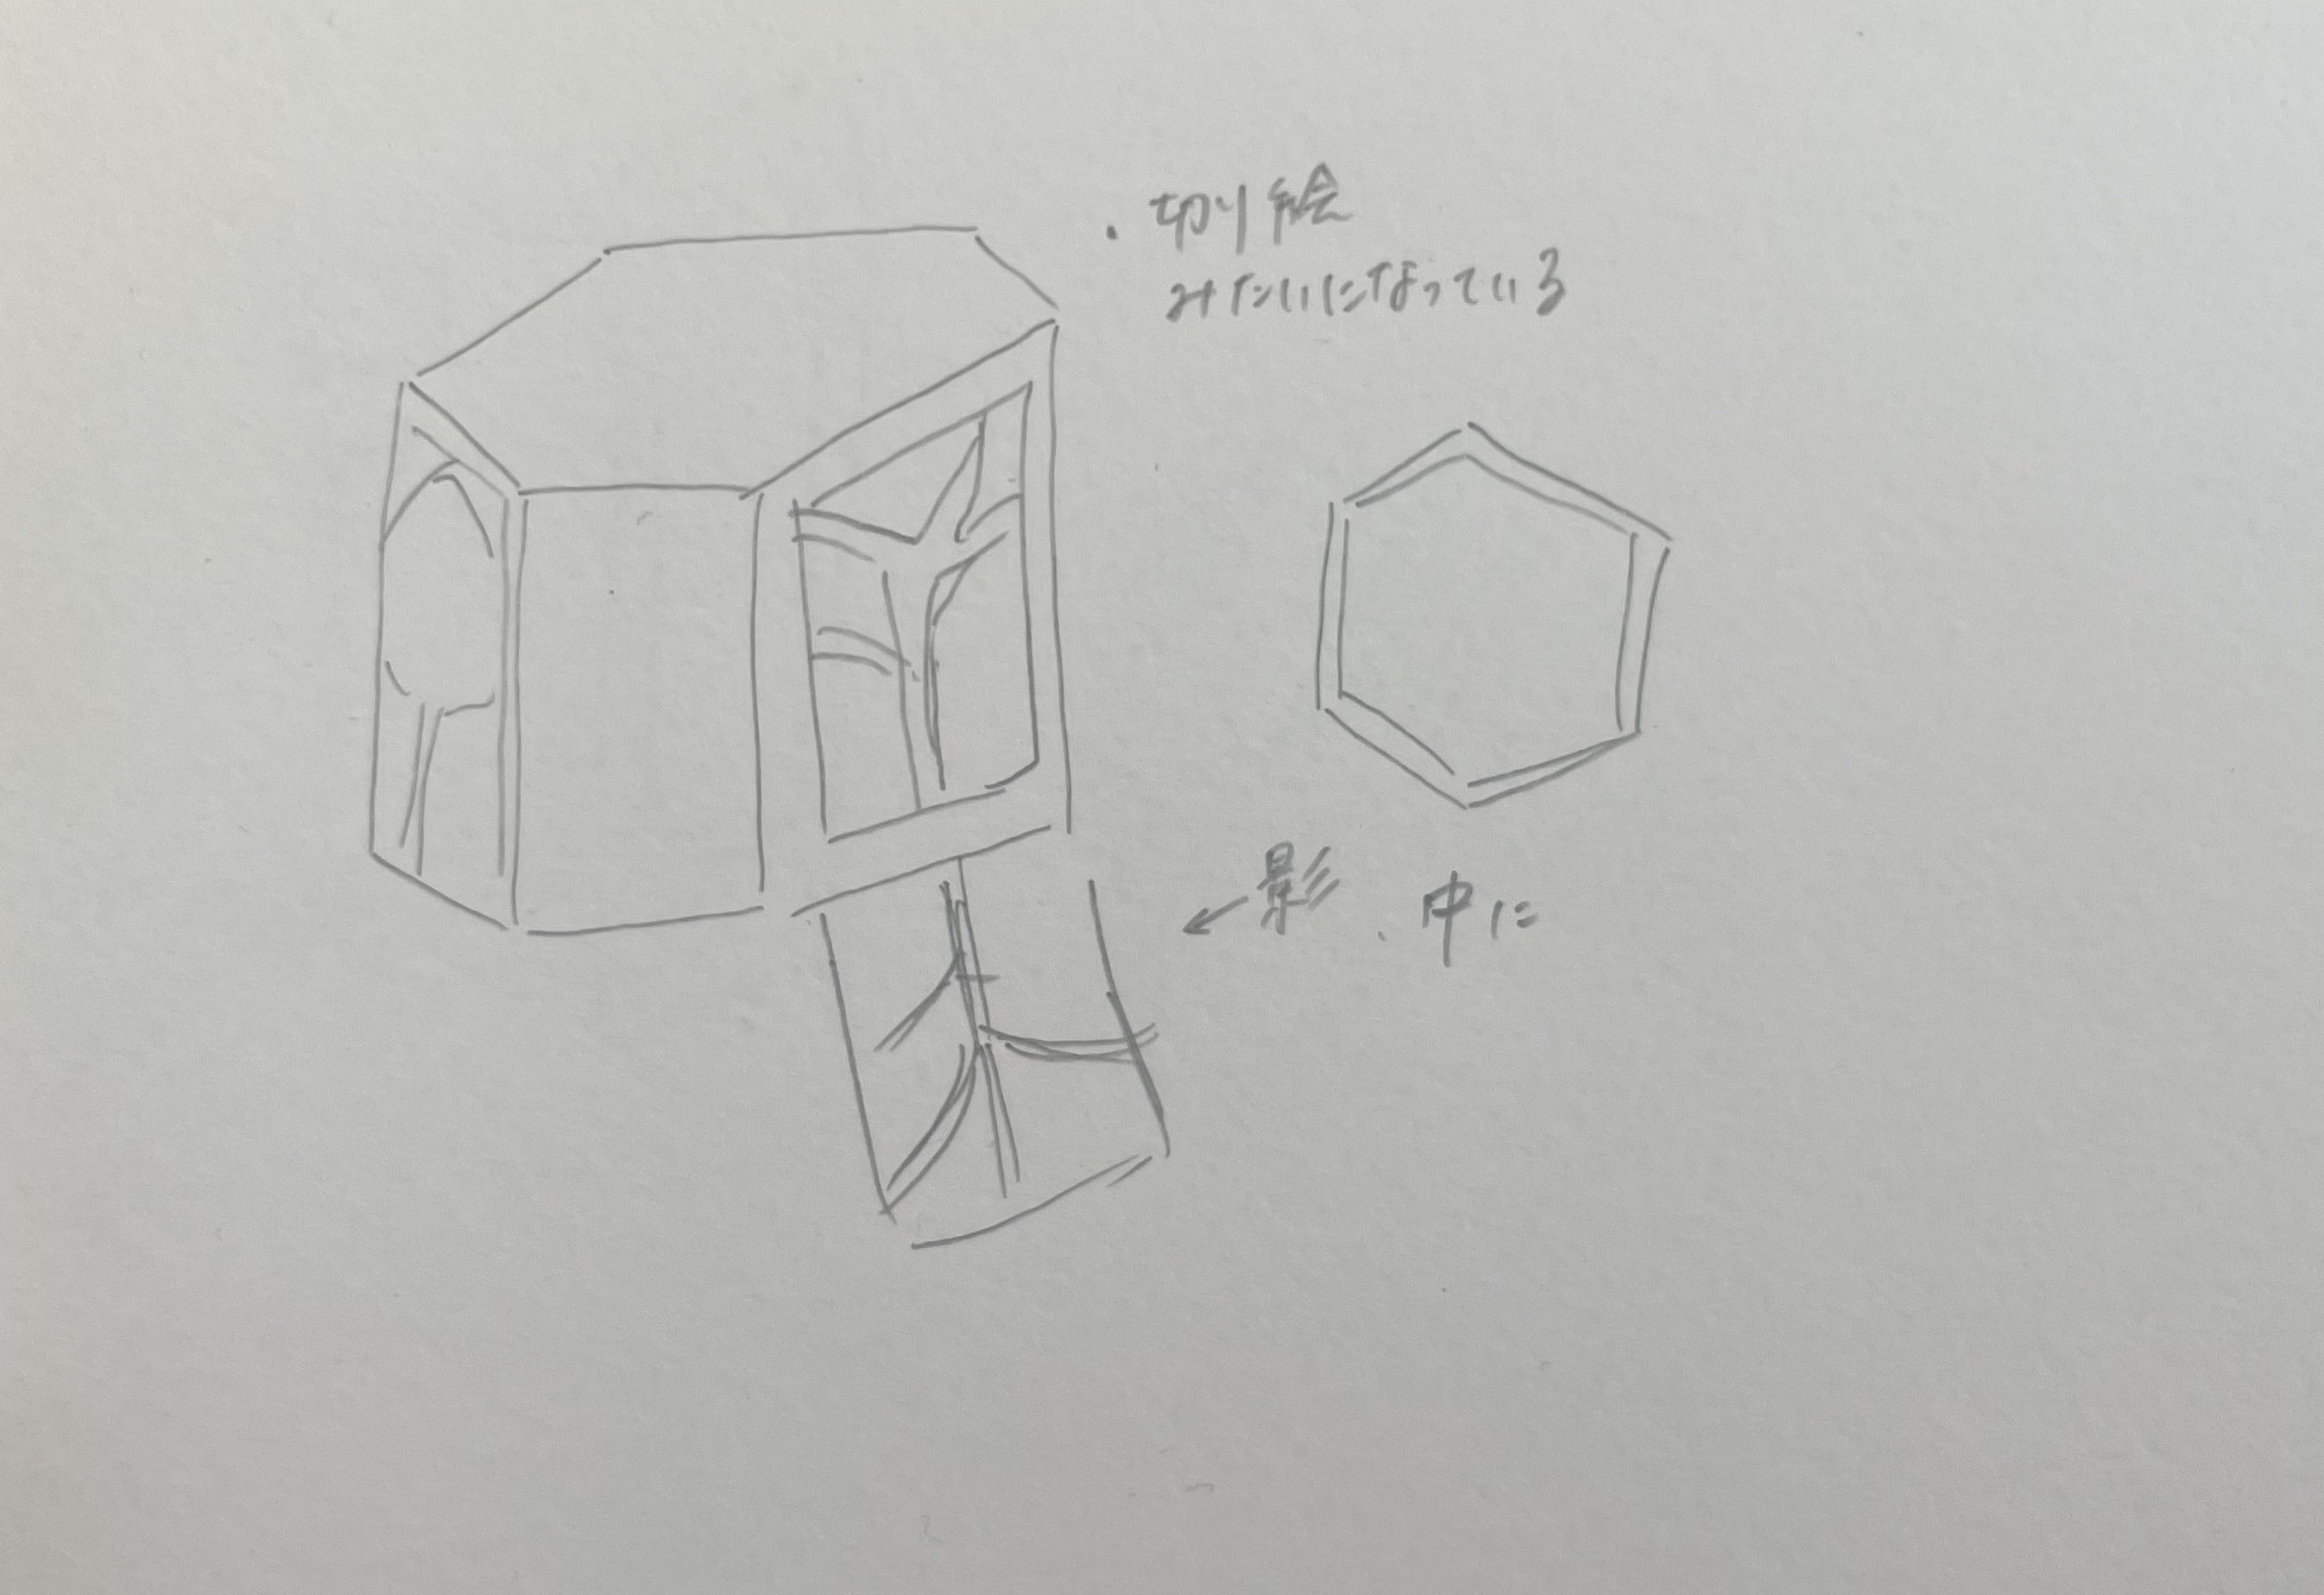 ・切り絵
みたいになっている
←影、中に